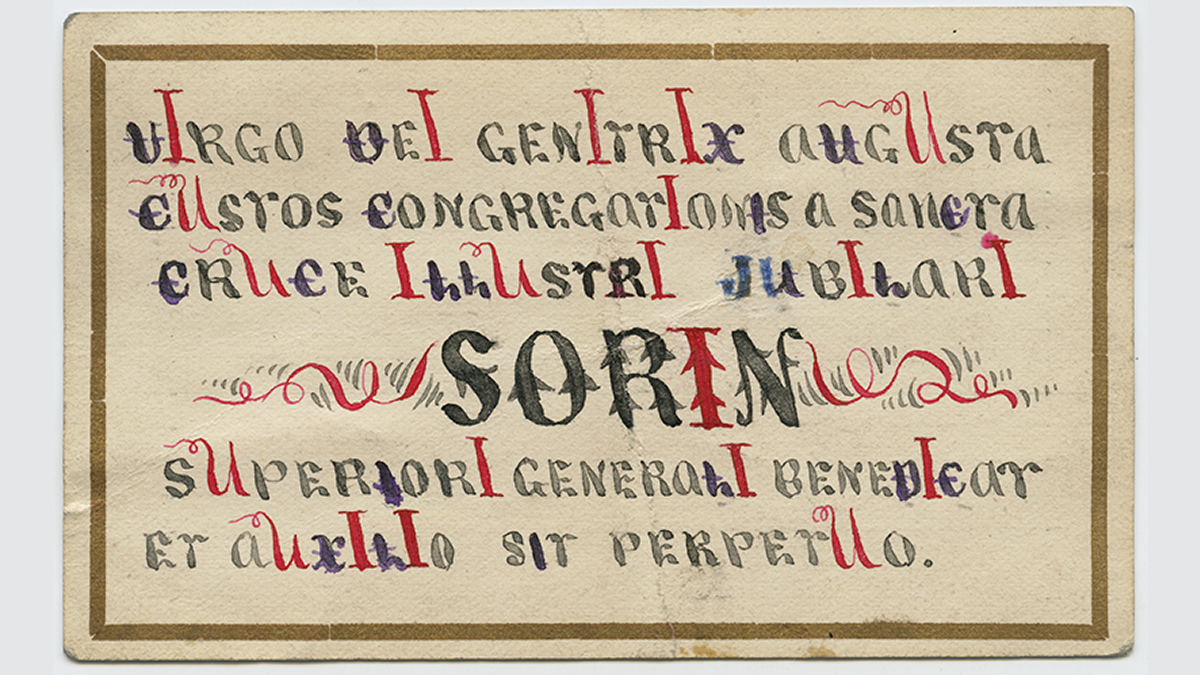 VIRGO DEI GENITRIX AUGUSTA
CUSTOS CONGREGATIONIS A SANCTA
CRUCE ILLUSTRI JUBILARI
SORIN
SUPERIORI GENERALI BENEDICAT
ET AUXILIO SIT PERPETUO.